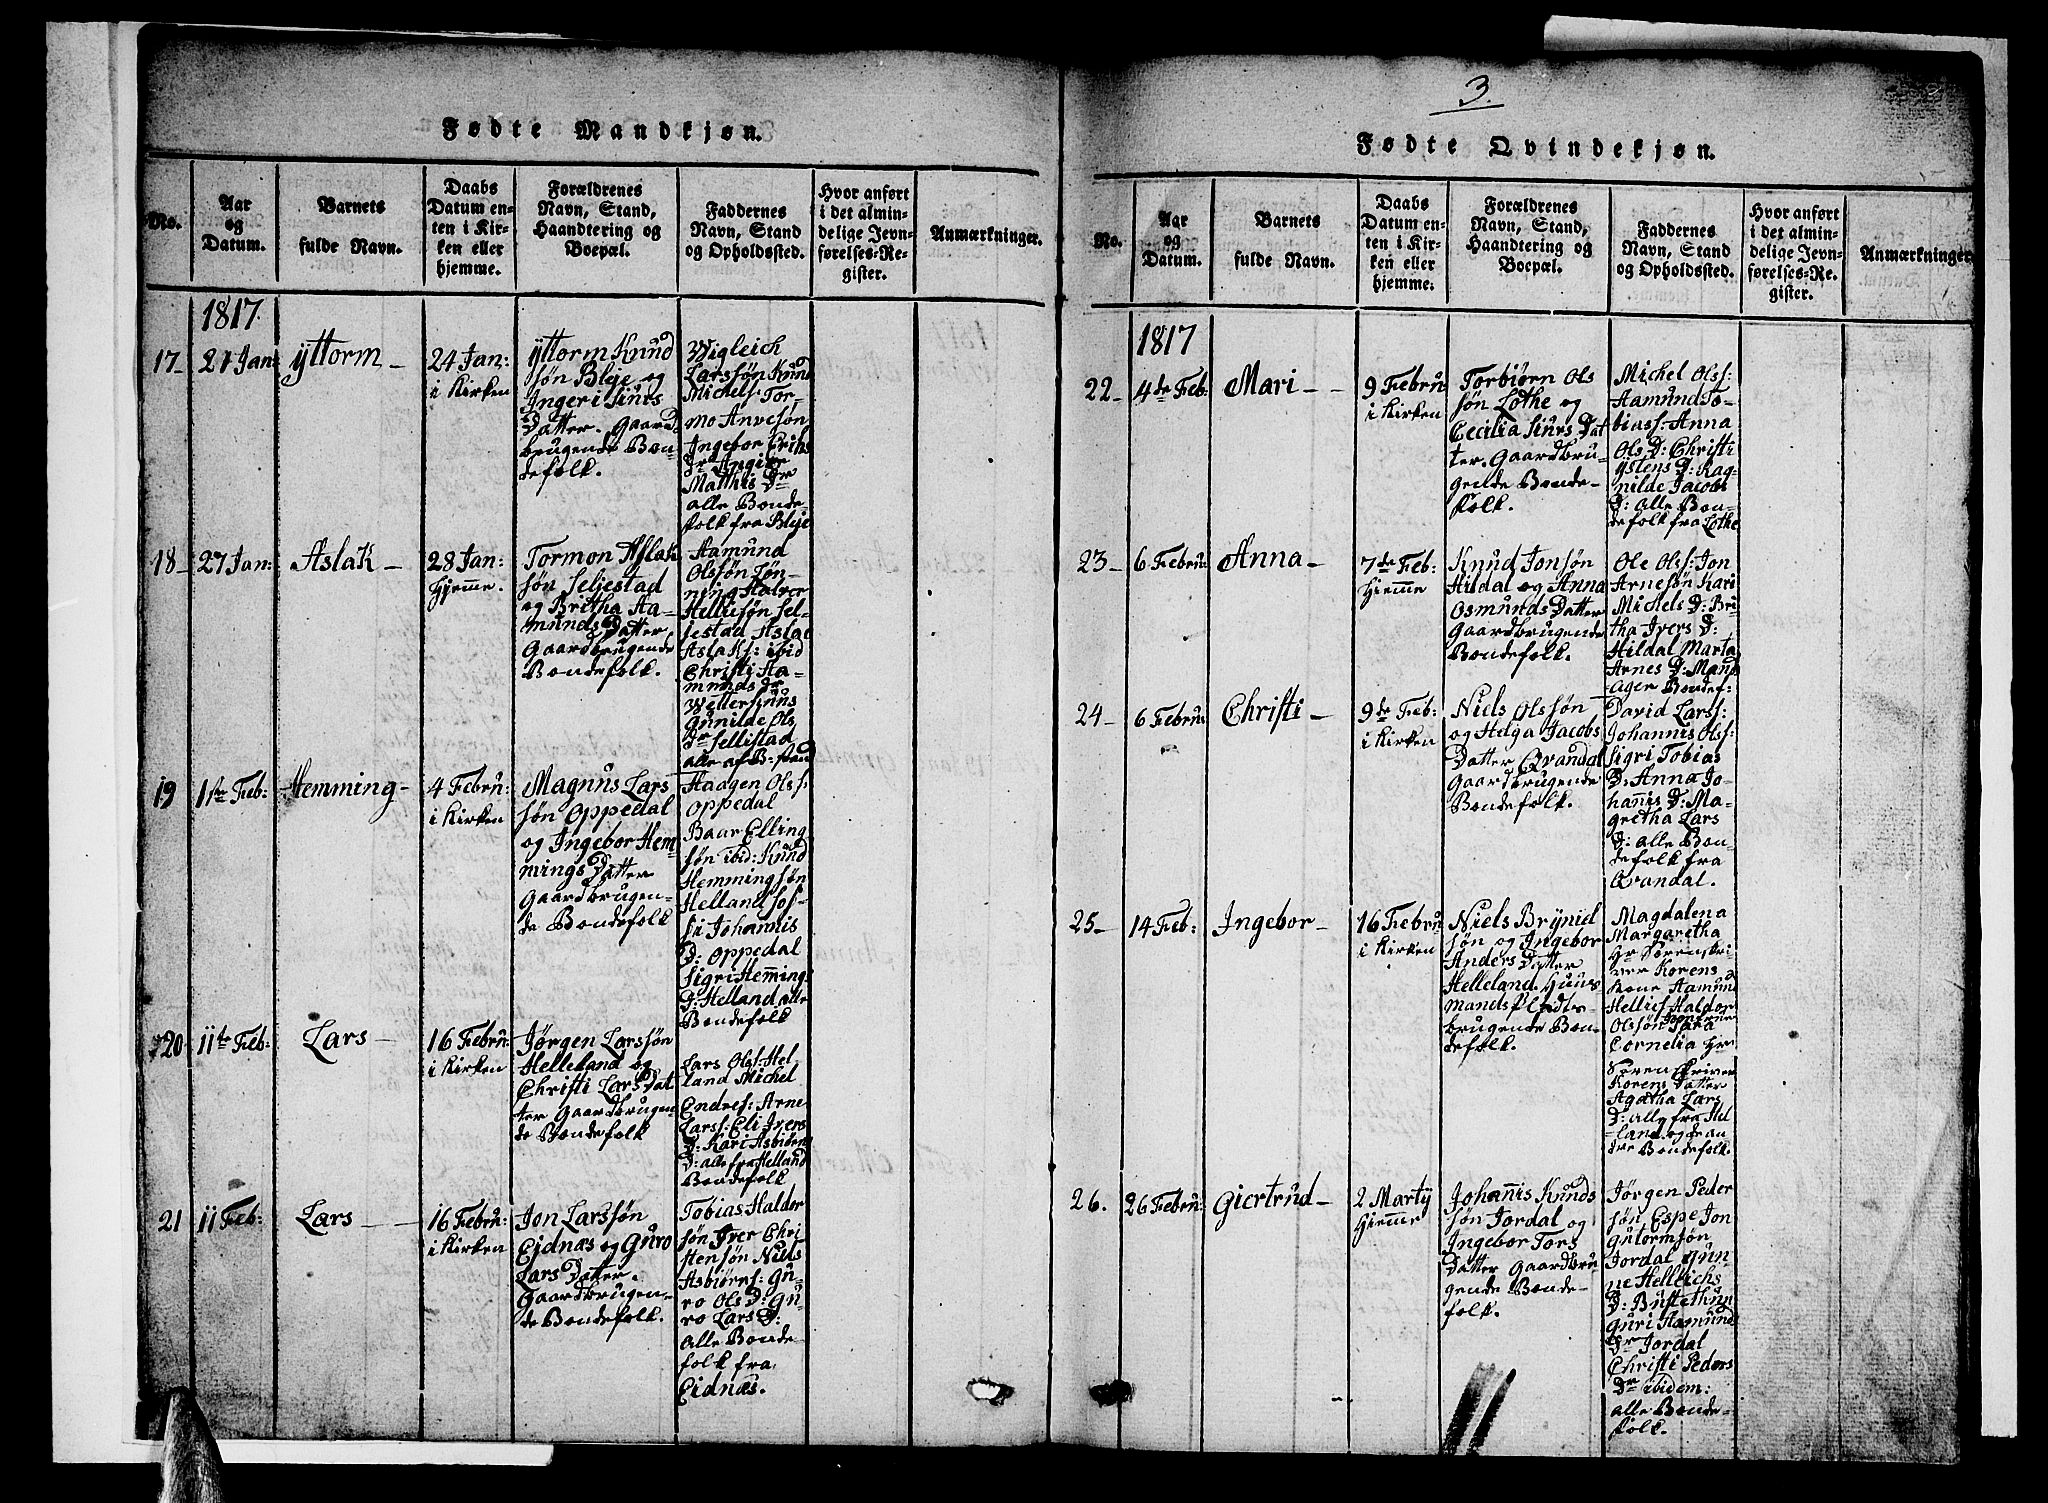 Fødte Mandkjøn.
No.
Aar
og
Datum.
Barnets
fulde Navn.
Daabs
Datum en-
ten i Kir-
ken eller
hjemme.
Forældrenes
Navn, Stand,
Haandtering og
Boepæl.
Faddernes
Navn, Stand
og Opholdssted.
Hvor anført
i det almin-
delige Jevn-
førelses-Re-
gister.
Anmærkninger.
1817
17-
21 Jan:
Yttorm -
24 Jan:
i Kirken
Yttorm Knud
søn Bleje og
Ingeri Siurs
Datter. Gaard-
brugende Bon-
defolk.
Wigleich
Larssøn Knud
Michels: Tor-
mo Anvesøn
Ingebor Erichs
Dr
Mathis Dr
alle Bonde-
folk fra Bleje
18-
27 Jan:
Aslak -
28 Jan:
Hjemme.
Tormon Aslak
søn Seljestad
og Britha Aa-
munds Datter
Gaardbrugende
Bondefolk.
Aamund
Olssøn Jøn-
ning Halvor
Hellisøn Sel-
jestad Aslac
Aslaks: ibid
Christi Aa-
munds Dr
Wetterhuus
Gunilde Ols
Dr Sellistad
alle af B: stand
19
1ste Feb:
Hemming -
4 Febru:
i Kirken
Magnus Lars
søn Oppedal
og Ingebor Hem-
mings Datter
Gaardbrugen-
de Bondefolk
Haagen Ols:
Oppedal
Baar Elling
søn ibid: Knud
Hemmingsøn
Helland Sos-
si Johannis
D: Oppedal
Sigri Hemmings
D: Helland alle
Bondefolk
20
11te Feb:
Lars -
16 Febru:
i Kirken
Jørgen Larssøn
Helleland og
Christi Lars Dat
ter Gaardbrugen-
de Bondefolk
Lars Ols: Hel
land Michel
Endres: Arne
Larss: Eli Ivers
D: Kari Asbiørns
D: alle fra Helland
Bondefolk
21
11 Feb:
Lars -
16 Febru:
i Kirken
Jon Larssøn
Eidnæs og Guro
Lars Datter.
Gaardbrugen-
de Bondefolk.
Tobias Haldor
søn Iver Chri
stensøn Niels
Asbiørns: Gu-
ro Ols D: Gu-
ro Lars D:
alle Bonde-
folk fra
Eidnæs.
3.
Fødte Qvindekjøn.
No.
Aar
og
Datum.
Barnets
fulde Navn.
Daabs
Datum en-
ten i Kir-
ken eller
hjemme.
Forældrenes
Navn, Stand,
Haandtering og
Boepæl.
Faddernes
Navn, Stand
og Opholdssted.
Hvor anført
i det almin-
delige Jevn-
førelses-Re-
gister.
Anmærkninger.
1817
22-
4de Feb:
Mari -
9 Febru
i Kirken
Torbiørn Ols
søn Lothe og
Cecilia Siurs Dat
ter. Gaardbru-
gende Bonde-
folk.
Michel Olss:
Aamund To-
biass: Anna
Ols D: Christi
Ystens D: Rag-
nilde Jacobs
D: alle Bon-
defolk fra Lothe
23-
6 Febru:
Anna -
7de Feb:
Hiemme
Knud Jonsøn
Hildal og Anna
Osmunds Datter
Gaardbrugende
Bondefolk.
Ole Olss: Jon
Arnesøn Kari
Michels D: Bri
tha Ivers D:
Hildal Marta
Arnes D: Mand
Ager Bondef-
24-
6 Febru:
Christi -
9de Feb:
i Kirken
Niels Olssøn
og Helga Jacobs
Datter Qvandal
Gaardbrugende
Bondefolk.
David Larss:
Johannis Olss:
Sigri Tobias
D: Anna Jo-
hannis D: Ma-
gretha Lars
D: alle Bon-
defolk fra
Qvandal.
25-
14 Feb:
Ingebor -
16 Febru
i Kirken
Niels Brynild
søn og Ingebor
Anders Datter
Helleland. Huus-
mands Pladts-
brugende Bon-
defolk.
Magdalena
Margaretha
Hr Sorenskri
ver Korens
Kone Aamund
Hellies: Haldor
Olssøn Jomfrue Sara
Cornelia Hr
Sorenskriver
Korens Datter
Agatha Lars
D: alle fra Hel
land og de an
dre Bondefolk.
26.
26 Febru:
Giertrud -
2 Martij
Hiemme
Johannis Knuds
søn Jordal og
Ingebor Tors
Datter Gaardbru
gende Bonde-
folk.
Jørgen Peder
søn Espe Jon
Gutormsøn
Jordal Gun-
ne Helleichs
D: Bustethun
Guri Aamunds
Dr Jordal
Christi Peders
Dr ibidem:
alle Bonde-
folk.